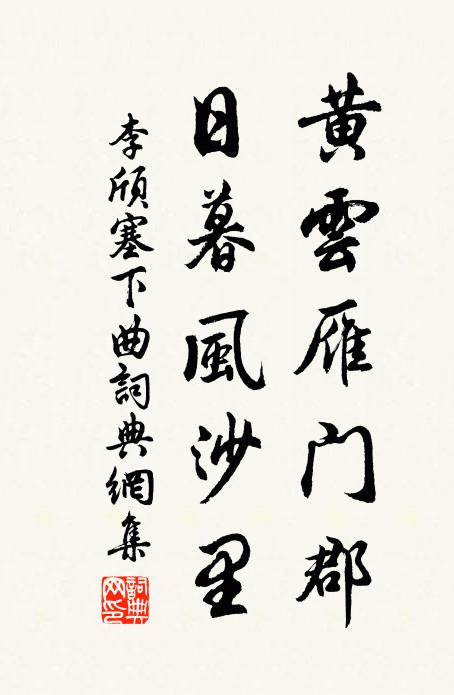 黃雲雁门郡
日暮風沙里
李頎塞下曲詞典網集
詞典网印